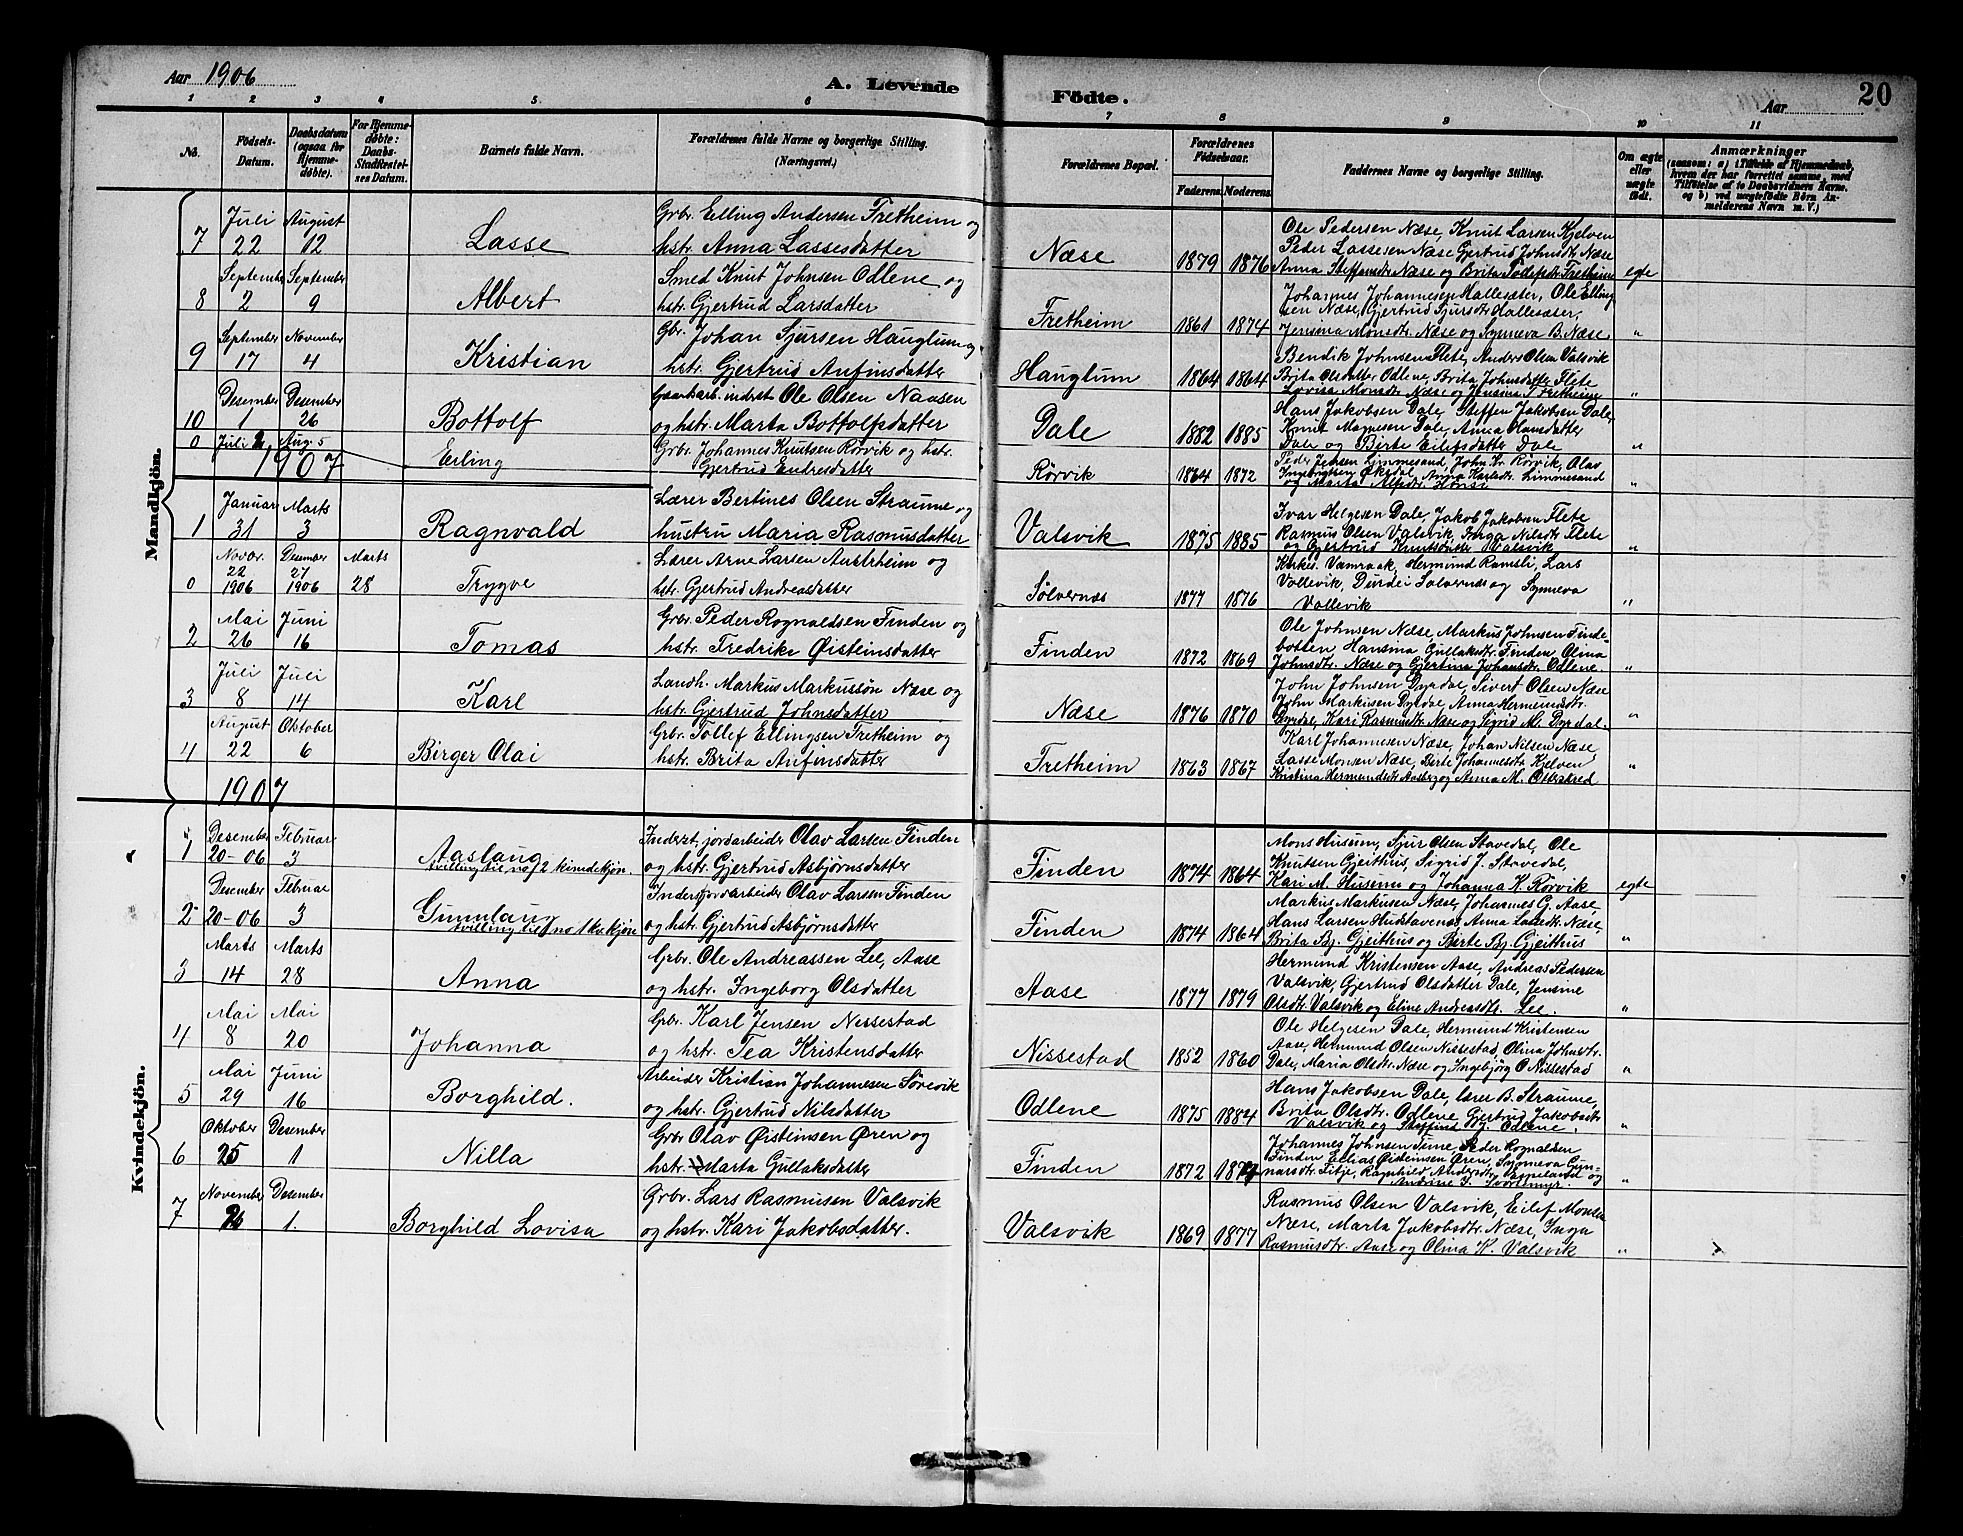 Aar 1906
A. Levende Födte.
Aar
20
1 2 3 4 5. 6 7 8 9 10 11
No.
Fødsels-Datum.
Daabsdatum (ogsaa for Hjemme-døbte).
For Hjemme-døbte: Daabs-Stadfæstel-ses Datum.
Barnets fulde Navn.
Forældrenes fulde Navne og borgerlige Stilling. (Næringsvei.)
Forældrenes Bopæl.
Forældrenes Födselsaar.
Faderens. Moderens.
Faddernes Navne og borgerlige Stilling.
Om ægte eller uægte født.
Anmærkninger
(saasom: a) i Tilfælde af Hjemmedaab, hvem der har forrettet samme, med Tilføielse af to Daabsvidners Navne. og b) ved uægtefødte Börn An-melderens Navn m. V.)
Mandkjön.
7 Juli 22 August 12 Lasse
Grbr. Elling Andersen Fretheim og
hstr. Anna Lassesdatter
Næse 1879 1876
Ole Pedersen Næse, Knut Larsen Kjelven
Peder Lassesen Næse Gjertrud Johnsdtr. Næse
Anna Steffensdtr. Næse og Brita Fretheim egte
8 September 2 September 9 Albert
Smed Knut Johnsen Odlene og
hstr. Gjertrud Larsdatter
Fretheim 1861 1874
Johannes Johannesen Hallesæter, Ole Elling
sen Næse, Gjertrud Sjursdtr. Hallesæter,
Jensina Monsdtr. Næse og Synneva B. Næse. "
9 September 17 November 4 Kristian
Gbr. Johan Sjursen Hauglum og
hstr. Gjertrud Anfinsdatter
Hauglum 1864 1864
Bendik Johnsen Flete, Anders Olsen Valsvik
Brita Olsdatter Odlene, Brita Johnsdatter Flete
Lovisa Monsdtr. Næse og Jensina Fretheim "
10 Desember 1 Desember 26 Bottolf
Gaardarb. inderst Ole Olsen Naasen
og hstr. Marta Bottolfsdatter
Dale 1882 1885
Hans Jakobsen Dale, Steffen Jakobsen Dale,
Knut Magnesen Dale, Anna Hansdatter
Dale og Birte Eilefsdatter Dale "
0 Juli 2 Aug. 5 Erling
Grbr. Johannes Knutsen Rörvik og hstr.
Gjertrud Endresdatter
Rörvik 1864 1872
Peder Jensen Limmesand, John Kr. Rörvik, Olav
Ingebrigtsen Öksdal, Anna Karlsdtr. Limmesand
og Marta Alfsdtr. "
1907
1 Januar 31 Marts 3 Ragnvald
Lærer Bertines Olsen Straume og
hustru Maria Rasmusdatter
Valsvik 1875 1885
Ivar Helgesen Dale, Jakob Jakobsen Flete
Rasmus Olsen Valsvik, Inga Nilsdtr Flete
og Gjertrud Knutsdatter Valsvik "
0 Novbr. 22 1906 Desember 27 1906 Marts 28 Trygve
Lærer Arne Larsen Austrheim og
hstr. Gjertrud Andreasdatter
Sølvernæs 1877 1876
Kirkes. Vamraak, Hermund Ramsli, Lars
Vollevik, Durdei Sølvernæs og Synneva
Vollevik "
2 Mai 26 Juni 16 Tomas
Grbr. Peder Rognaldsen Finden og
hstr. Fredrike Øisteinsdatter
Finden 1872 1869
Ole Johnsen Næse, Markus Johnsen Finde-
botten, Hansina Gullaksdtr. Finden, Olina
Johnsdtr. Næse og Gjertina Johansdtr. Odlene. "
3 Juli 8 Juli 14 Karl
Landh. Markus Markussön Næse og
hstr. Gjertrud Johnsdatter
Næse 1876 1870
John Johnsen Dyrdal, Sivert Olsen Næse
John Markusen Dyrdal, Anna Hermundsdtr.
Dyrdal, Kari Rasmusdtr. Næse og Sigrid M. Dyrdal. "
4 August 22 Oktober 6 Birger Olai
Grbr. Tollef Ellingsen Fretheim og
hstr. Brita Anfinsdatter
Fretheim 1863 1867
Karl Johannesen Næse, Johan Nilsen Næse
Lasse Monsen Næse, Birte Johannesdtr Kjelven
Kristina Hermundsdtr. Aaberg og Anna M. "
1907
Kvindekjön.
1 Desember 20-06 Februar 3 Aaslaug
tvilling til no 2 kvindekjøn.
Inderst, jordarbeider Olav Larsen Finden
og hstr. Gjertrud Asbjørnsdatter
Finden 1874 1864
Mons Husum, Sjur Olsen Stavedal, Ole
Knutsen Gjeithus, Sigrid J. Stavedal,
Kari M. Husum og Johanna K. Rörvik egte
2 Desember 20-06 Februar 3 Gunnlaug
tvilling til no 1 kv.kjøn
Inderst, jordarbeider Olav Larsen Finden
og hstr. Gjertrud Asbjørnsdatter
Finden 1874 1864
Markus Markusen Næse, Johannes G. Aase,
Hans Larsen Huslavenæs Anna Lassedtr. Næse,
Brita Bj. Gjeithus og Birte Bj. Gjeithus "
3 Marts 14 Marts 28 Anna
Grbr. Ole Andreassen Lee, Aase
og hstr. Ingeborg Olsdatter
Aase 1877 1879
Hermund Kristensen Aase, Andreas Pedersen
Valsvik, Gjertrud Olsdatter Dale, Jensine
Olsdtr. Valsvik og Eline Andreasdtr. Lee. "
4 Mai 8 Mai 20 Johanna
Grbr. Karl Jensen Nissestad
og hstr. Tea Kristensdatter
Nissestad 1852 1860
Ole Helgesen Dale, Hermund Kristensen
Aase, Hermund Olsen Nissestad, Olina Johnsdtr.
Dale, Maria Olsdtr. Næse og Ingebjörg O Nissestad "
5 Mai 29 Juni 16 Borghild.
Arbeider Kristian Johannesen Sörevik
og hstr. Gjertrud Nilsdatter
Odlene 1875 1884
Hans Jakobsen Dale, lærer B. Straume,
Brita Olsdtr. Odlene, Gjertrud Jakobsdtr
Valsvik og J. Odlene. "
6 Oktober 25 Desember 1 Nilla
Grbr. Olav Øisteinsen Øren og
hstr. Marta Gullaksdatter
Finden 1872 1874
Johannes Johnsen Tune, Peder Rognaldsen
Finden Elias Øisteinsen Øren, Synneva Gun-
narsdtr. Fitje, Ragnhild Andersdtr. og
Andrine I. Svortemyr. "
7 November 26 Desember 1. Borghild Lovisa
Grbr. Lars Rasmusen Valsvik
og hstr. Kari Jakobsdatter.
Valsvik 1869 1877
Rasmus Olsen Valsvik, Eilef Monsen
Næse, Marta Jakobsdtr. Næse, Inga
Rasmusdtr. Aase og Olina K. Valsvik "